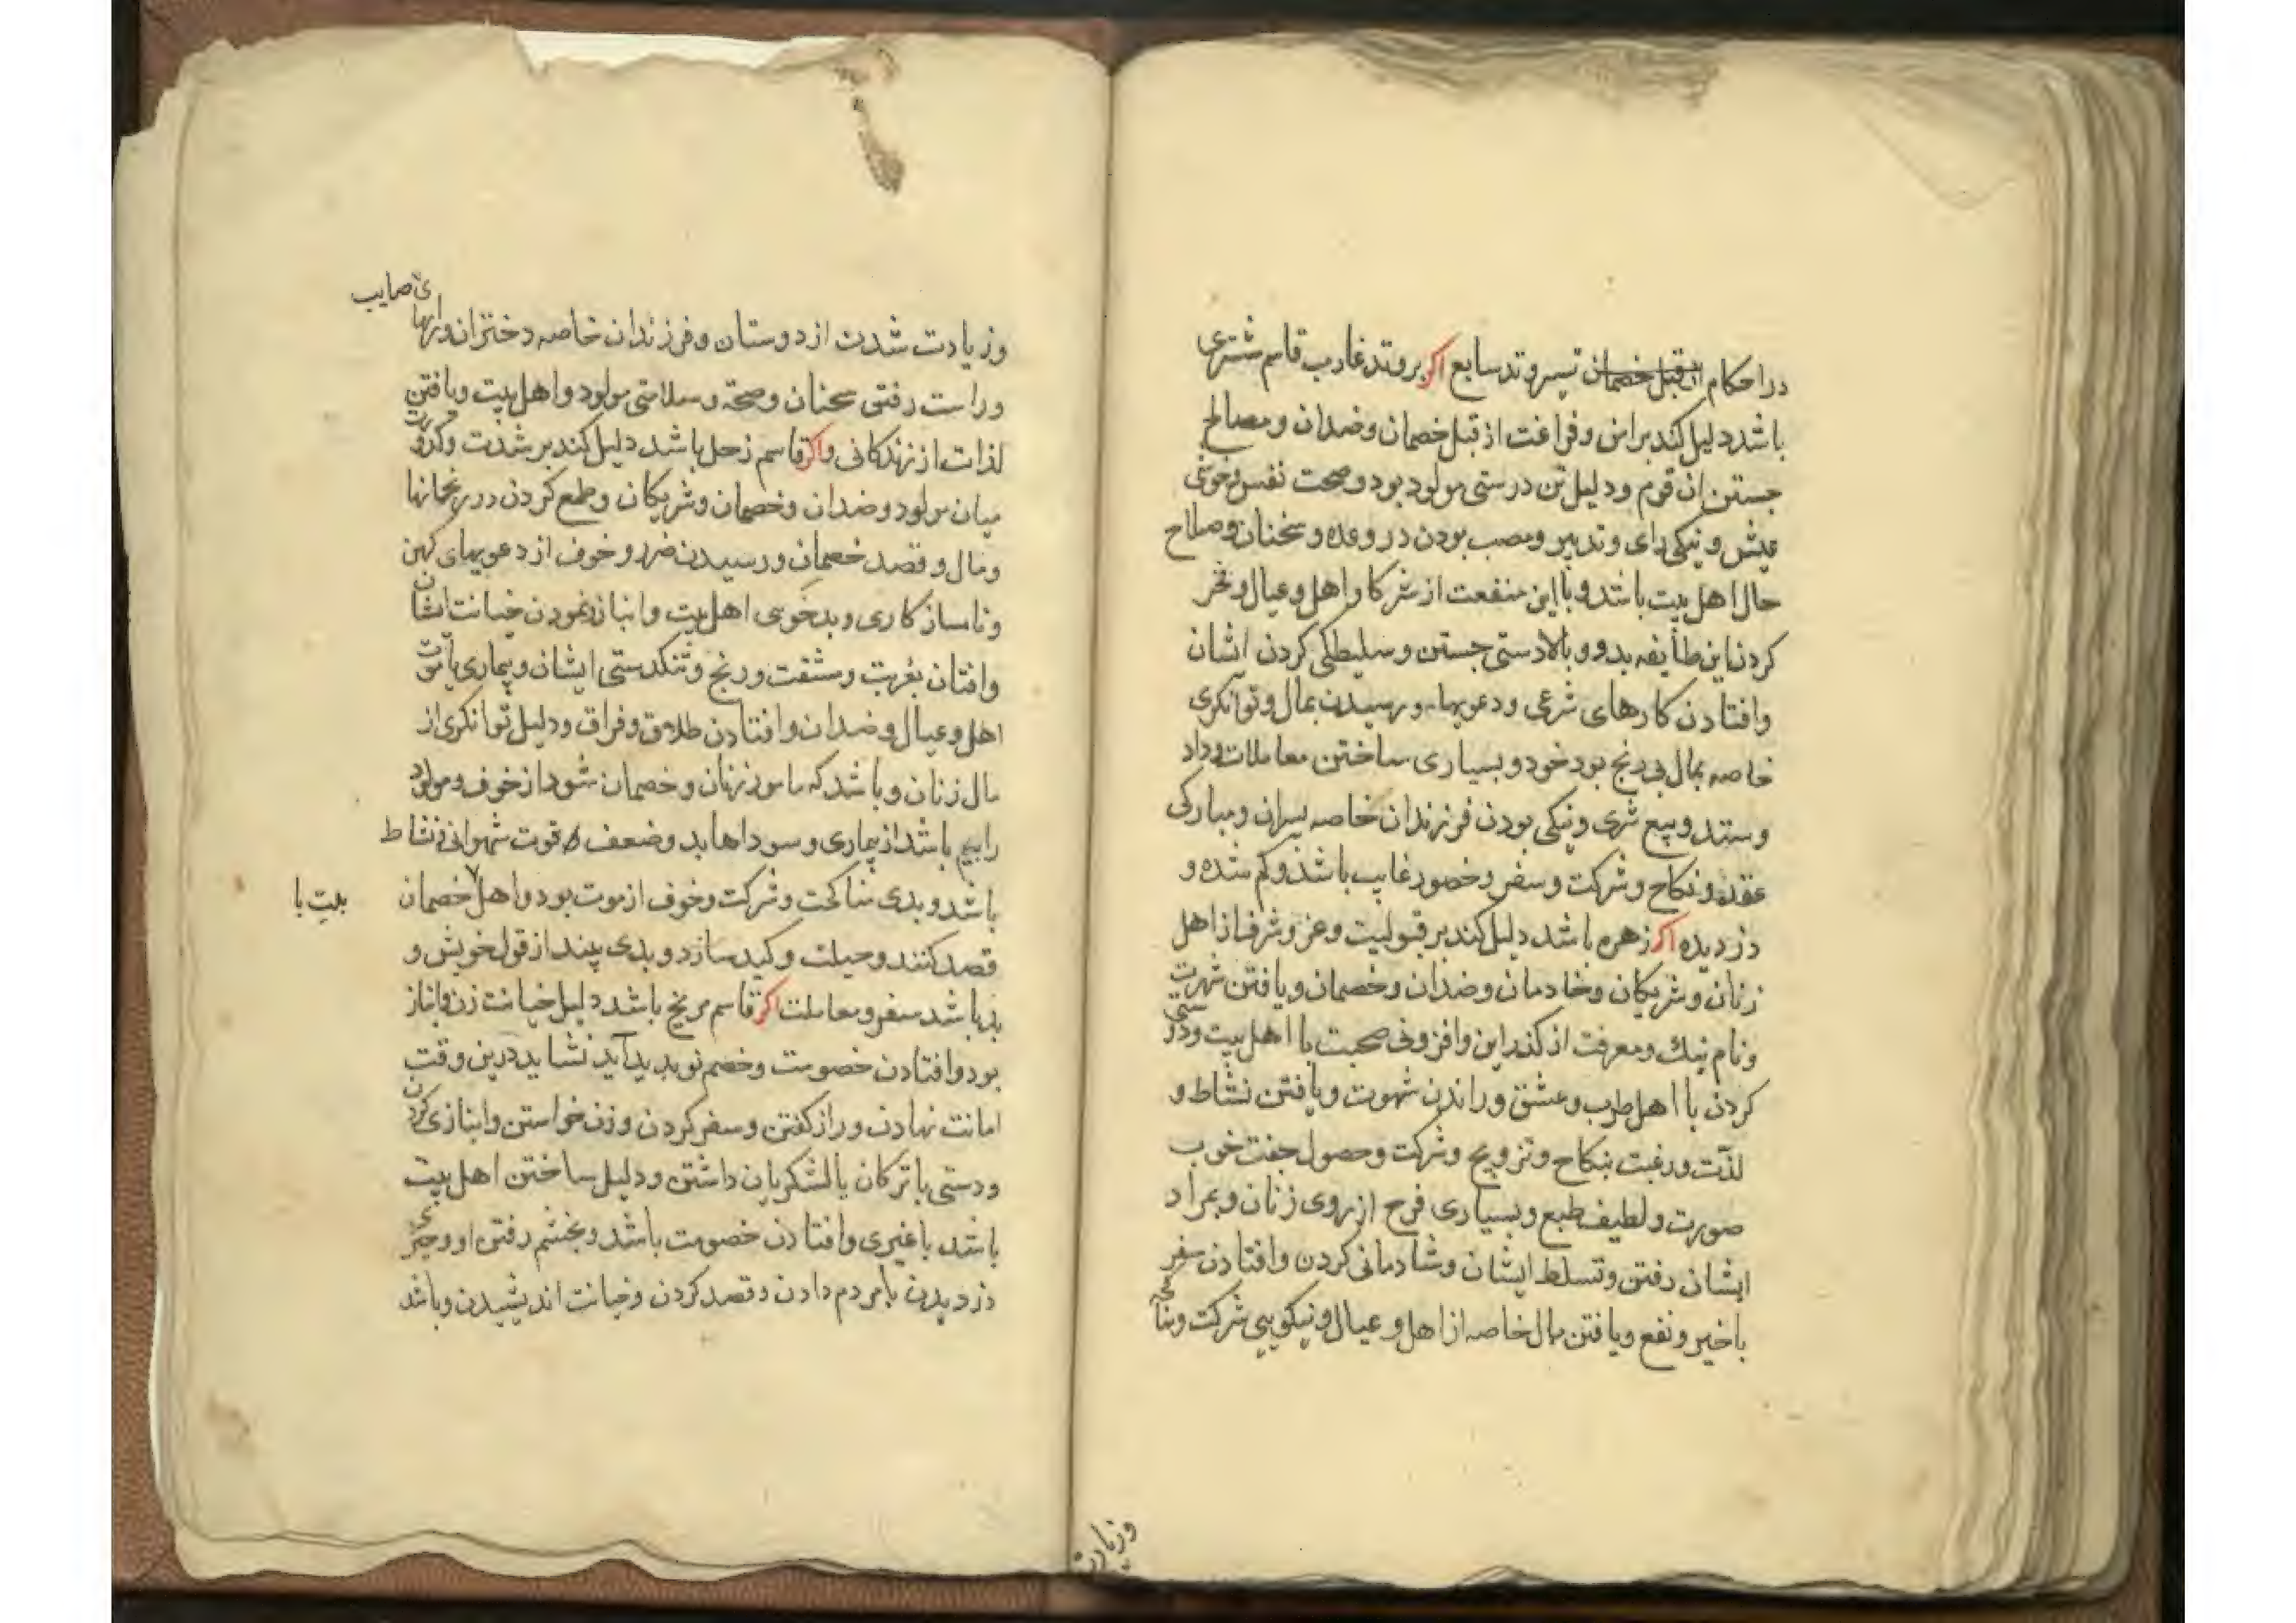 در احکام از قبل خصمان تسیر وتد سابع اکر بر وتد غارب قاسم مشتری
باشد دلیل کند بر امن و فراغت از قبل خصمان و ضدان و مصالح
جستن ان قوم و دلیل تن درستی مولود بود و صحت نفس و خوشی
عیش و نیکی رای و تدبیر و مصیب بودن در وعده و سخنان و صلاح
حال اهل بیت باشد و با این منفعت از شرکا و اهل و عیال و فخر
کردن این طایفه بدو و بالادستی جستن و سلیطکی کردن ایشان
وافتادن کارهای شرعی و دعویها و رسیدن بمال و توانکری
خاصه بمال بی رنج بود خود و بسیاری ساختن معاملات و داد
و ستد و بیع شری و نیکی بودن فرزندان خاصه پسران و مبارکی
عقده و نکاح و شرکت و سفر و خصور غایب باشد و کم شده و
دزدیده اکر زهره باشد دلیل کند بر قبولیت و عز و شرف از اهل
زنان و شریکان و خادمان و ضدان و خصمان و یافتن شهرت
ونام نیک و معرفت از کذر این وافزونی صحبت با اهل بیت و دوستی
کردن با اهل طرب و عشق و راندن شهوت و یافتن نشاط و
لذت و رغبت بنکاح و تزویج و شرکت و حصول جفت خوب
صورت و لطیف طبع و بسیاری فرح از روی زنان و بمراد
ایشان رفتن و تسلط ایشان و شادمانی کردن وافتادن سفر
باخیر و نفع و یافتن مال خاصه از اهل و عیال و نیکویی شرکت و
وزیادت
وزیادت شدن از دوستان و فرزندان خاصه دختران و رایهای صایب
وراست رفتن سخنان و صحة و سلامتی مولود و اهل بیت و یافتن
لذات از زندکانی و اکر قاسم زحل باشد دلیل کند بر شدت و کدورت
میان مولود و ضدان و خصمان و شریکان و طمع کردن در
ومال و قصد خصمان و رسیدن ضرر و خوف از دعویهای کهن
وناساز کاری و بدخویی اهل بیت و انباز و نمودن خیانت ایشان
وافتان بغربت و مشقت و رنج و تنکدستی ایشان و بیماری یا موت
اهل و عیال و ضدان وافتادن طلاق و فراق و دلیل توانکری از
مال زنان و باشد که مامور زنان و خصمان شود از خوف و مولود
رابیم باشد از بیماری و سوداها بد و ضعف قوت شهوانی و نشاط
باشد و بدی مناکحت و شرکت و خوف از موت بود و اهل خصمان
بیت با
قصد کنند و حیلت و کید سازد و بدی بیند از قول خویش و
بد باشد سفر و معاملت اکر قاسم مریخ باشد دلیل خیانت زن وانباز
بود وافتادن خصومت و خصم نو پدید آید نشاید درین وقت
امانت نهادن و راز کفتن و سفر کردن و زن خواستن و انبازی کردن
ودستی با ترکان یا لشکریان داشتن و دلیل ساختن اهل بیت
باشد با غیری وافتادن خصومت باشد و بخشم رفتن او و چیزی
دزدیدن یا مردم دادن و قصد کردن و خیانت اندیشیدن و باشد